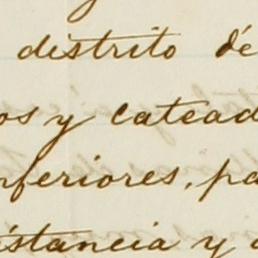 distrito de
os y catead
nferiores, pa
istancia y a